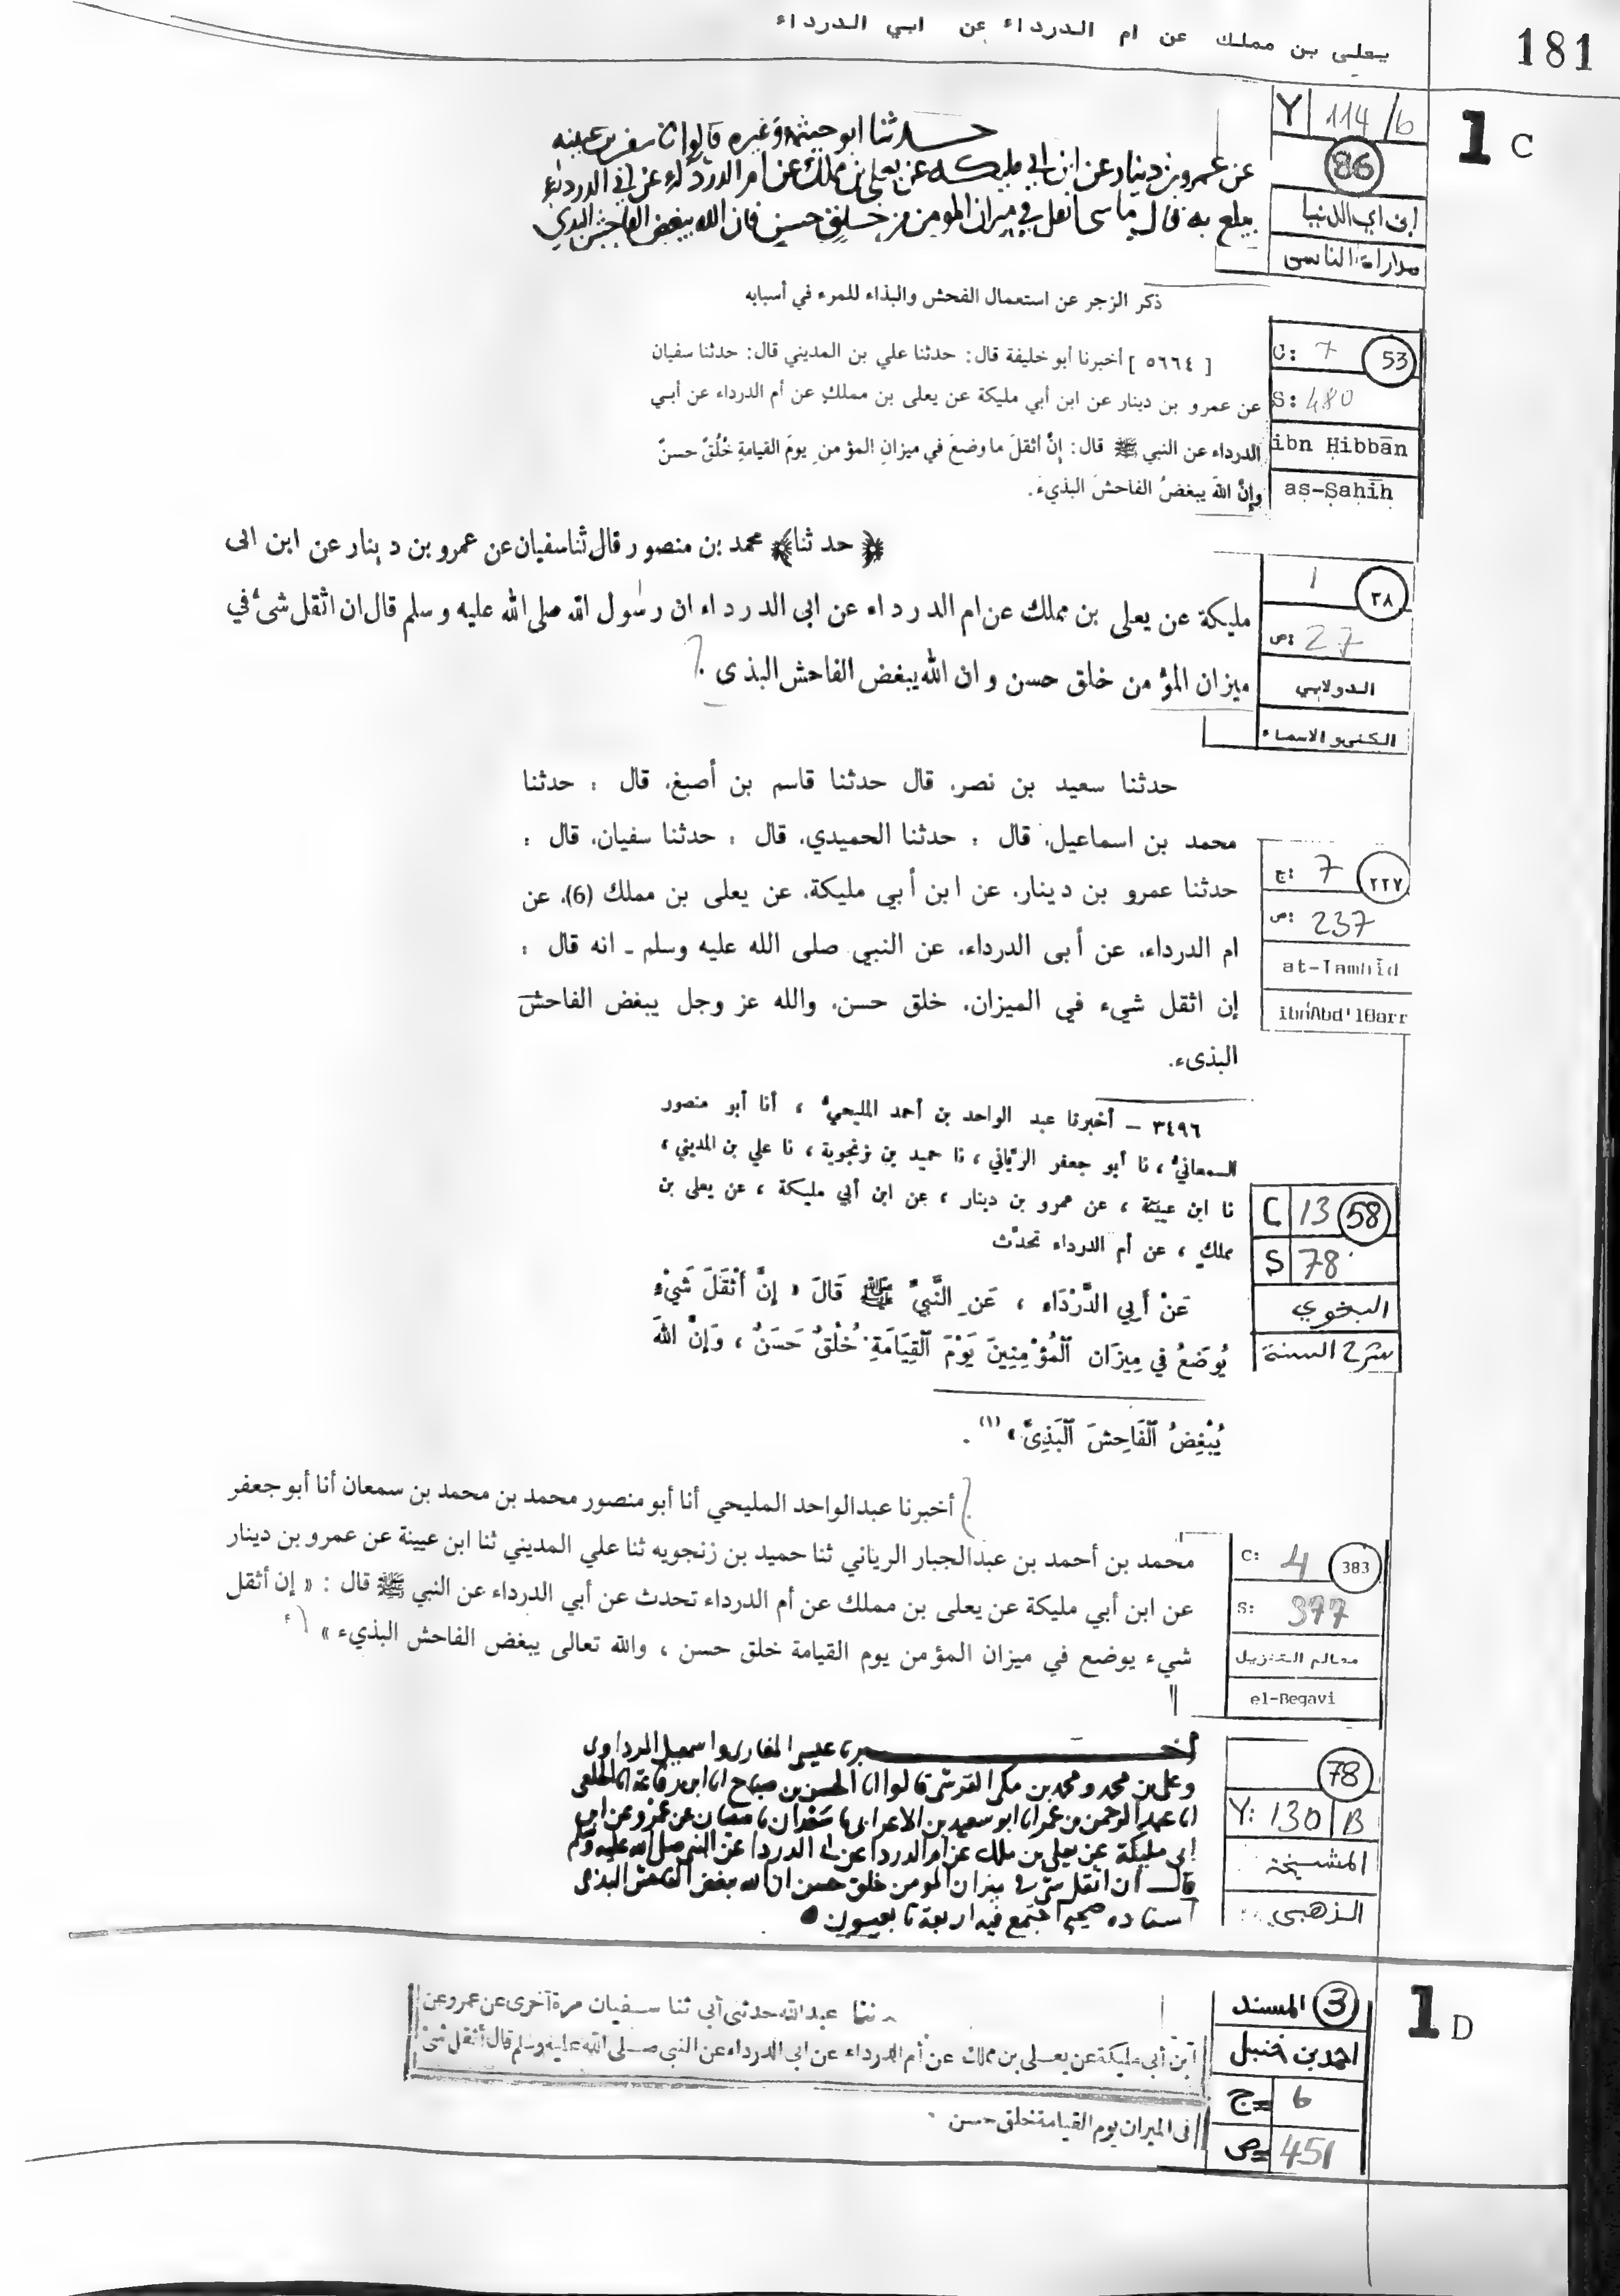 181
يعلى بن مملك عن ام الدرداء عن ابي الدرداء
1 C
Y 114/b
86
ابن ابي الدنيا
مداراة الناس
حدثنا ابو خيثمة وغيره قالوا نا سفين بن عيينه
عن عمرو بن دينار عن ابن ابي مليكه عن يعلى بن مملك عن ام الدرداء عن ابي الدرداء
يبلغ به قال ما شى اثقل في ميزان المومن من خلق حسن فان الله يبغض الفاحش البذي
ذكر الزجر عن استعمال الفحش والبذاء للمرء في أسبابه
C: 7 53
S: 480
ibn Ḥibbān
aṣ-Ṣaḥīḥ
[ ٥٦٦٤ ] أخبرنا أبو خليفة قال: حدثنا علي بن المديني قال: حدثنا سفيان
عن عمرو بن دينار عن ابن أبي مليكة عن يعلى بن مملكٍ عن أم الدرداء عن أبي
الدرداء عن النبي ﷺ قال: إنَّ أثقلَ ما وضعَ في ميزانِ المؤمنِ يومَ القيامةِ خُلُقٌ حسنٌ
وإنَّ اللهَ يبغضُ الفاحشَ البذيءَ.
﴿حدثنا﴾ محمد بن منصور قال ثنا سفيان عن عمرو بن دينار عن ابن ابى
مليكة عن يعلى بن مملك عن ام الدرداء عن ابى الدرداء ان رسول الله صلى الله عليه وسلم قال ان اثقل شئ في
ميزان المؤمن خلق حسن وان الله يبغض الفاحش البذى .
1 ٣٨
ص: 27
الدولابي
الكنى و الاسماء
حدثنا سعيد بن نصر، قال حدثنا قاسم بن أصبغ، قال : حدثنا
محمد بن اسماعيل، قال : حدثنا الحميدي، قال : حدثنا سفيان، قال :
حدثنا عمرو بن دينار، عن ابن أبي مليكة، عن يعلى بن مملك (6)، عن
ام الدرداء، عن أبى الدرداء، عن النبي صلى الله عليه وسلم ـ انه قال :
إن اثقل شيء في الميزان، خلق حسن، والله عز وجل يبغض الفاحش
البذىء.
ج: 7 ٢٢٧
ص: 237
at-Tamhīd
ibn'Abd'lBarr
٣٤٩٦ – أخبرنا عبد الواحد بن أحمد المليحيُّ ، أنا أبو منصور
السمعانيُّ ، نا أبو جعفر الرَّياني ، نا حميد بن زنجوية ، نا علي بن المديني ،
نا ابن عيينة ، عن عمرو بن دينار ، عن ابن أبي مليكة ، عن يعلى بن
مملكٍ ، عن أم الدرداء تحدَّث
عَنْ أَبِي الدَّرْدَاءِ ، عَنِ النَّبيِّ ﷺ قَالَ « إنَّ أَثْقَلَ شَيْءٍ
يُوضَعُ فِي مِيزَانِ ٱلْمُؤْمِنِينَ يَوْمَ ٱلْقِيَامَةِ خُلُقٌ حَسَنٌ ، وَإنَّ اللهَ
يُبْغِضُ ٱلْفَاحِشَ ٱلْبَذِىَّ » (١) .
C 13 58
S 78
البغوي
شرح السنة
أخبرنا عبدالواحد المليحي أنا أبو منصور محمد بن محمد بن سمعان أنا أبو جعفر
محمد بن أحمد بن عبدالجبار الرياني ثنا حميد بن زنجويه ثنا علي المديني ثنا ابن عيينة عن عمرو بن دينار
عن ابن أبي مليكة عن يعلى بن مملك عن أم الدرداء تحدث عن أبي الدرداء عن النبي ﷺ قال : « إن أثقل
شيء يوضع في ميزان المؤمن يوم القيامة خلق حسن ، والله تعالى يبغض الفاحش البذيء »
C: 4 383
S: 377
معالم التنزيل
el-Begavi
اخبرنا عيسى المغارى واسمعيل المرداوى
وعلى بن محمد ومحمد بن مكى القرشى قالوا انا الحسن بن صباح انا ابن رفاعة انا الخلعى
انا عبد الرحمن بن عمر انا ابو سعيد بن الاعرابى نا سعدان نا سفيان عن عمرو عن ابن
ابى مليكة عن يعلى بن مملك عن ام الدردا عن ابى الدردا عن النبى صلى الله عليه وسلم
قال ان اثقل شى فى ميزان المومن خلق حسن ان الله يبغض الفاحش البذى
اسناده صحيح اجتمع فيه اربعة تابعيون
78
Y: 130 B
المشيخة
الذهبي
1 D
3 المسند
احمد بن حنبل
ج= 6
ص= 451
ثنا عبد الله حدثنى أبى ثنا سفيان مرة أخرى عن عمرو عن
ابن أبى مليكة عن يعلى بن مملك عن أم الدرداء عن ابى الدرداء عن النبى صلى الله عليه وسلم قال أثقل شئ
فى الميزان يوم القيامة خلق حسن